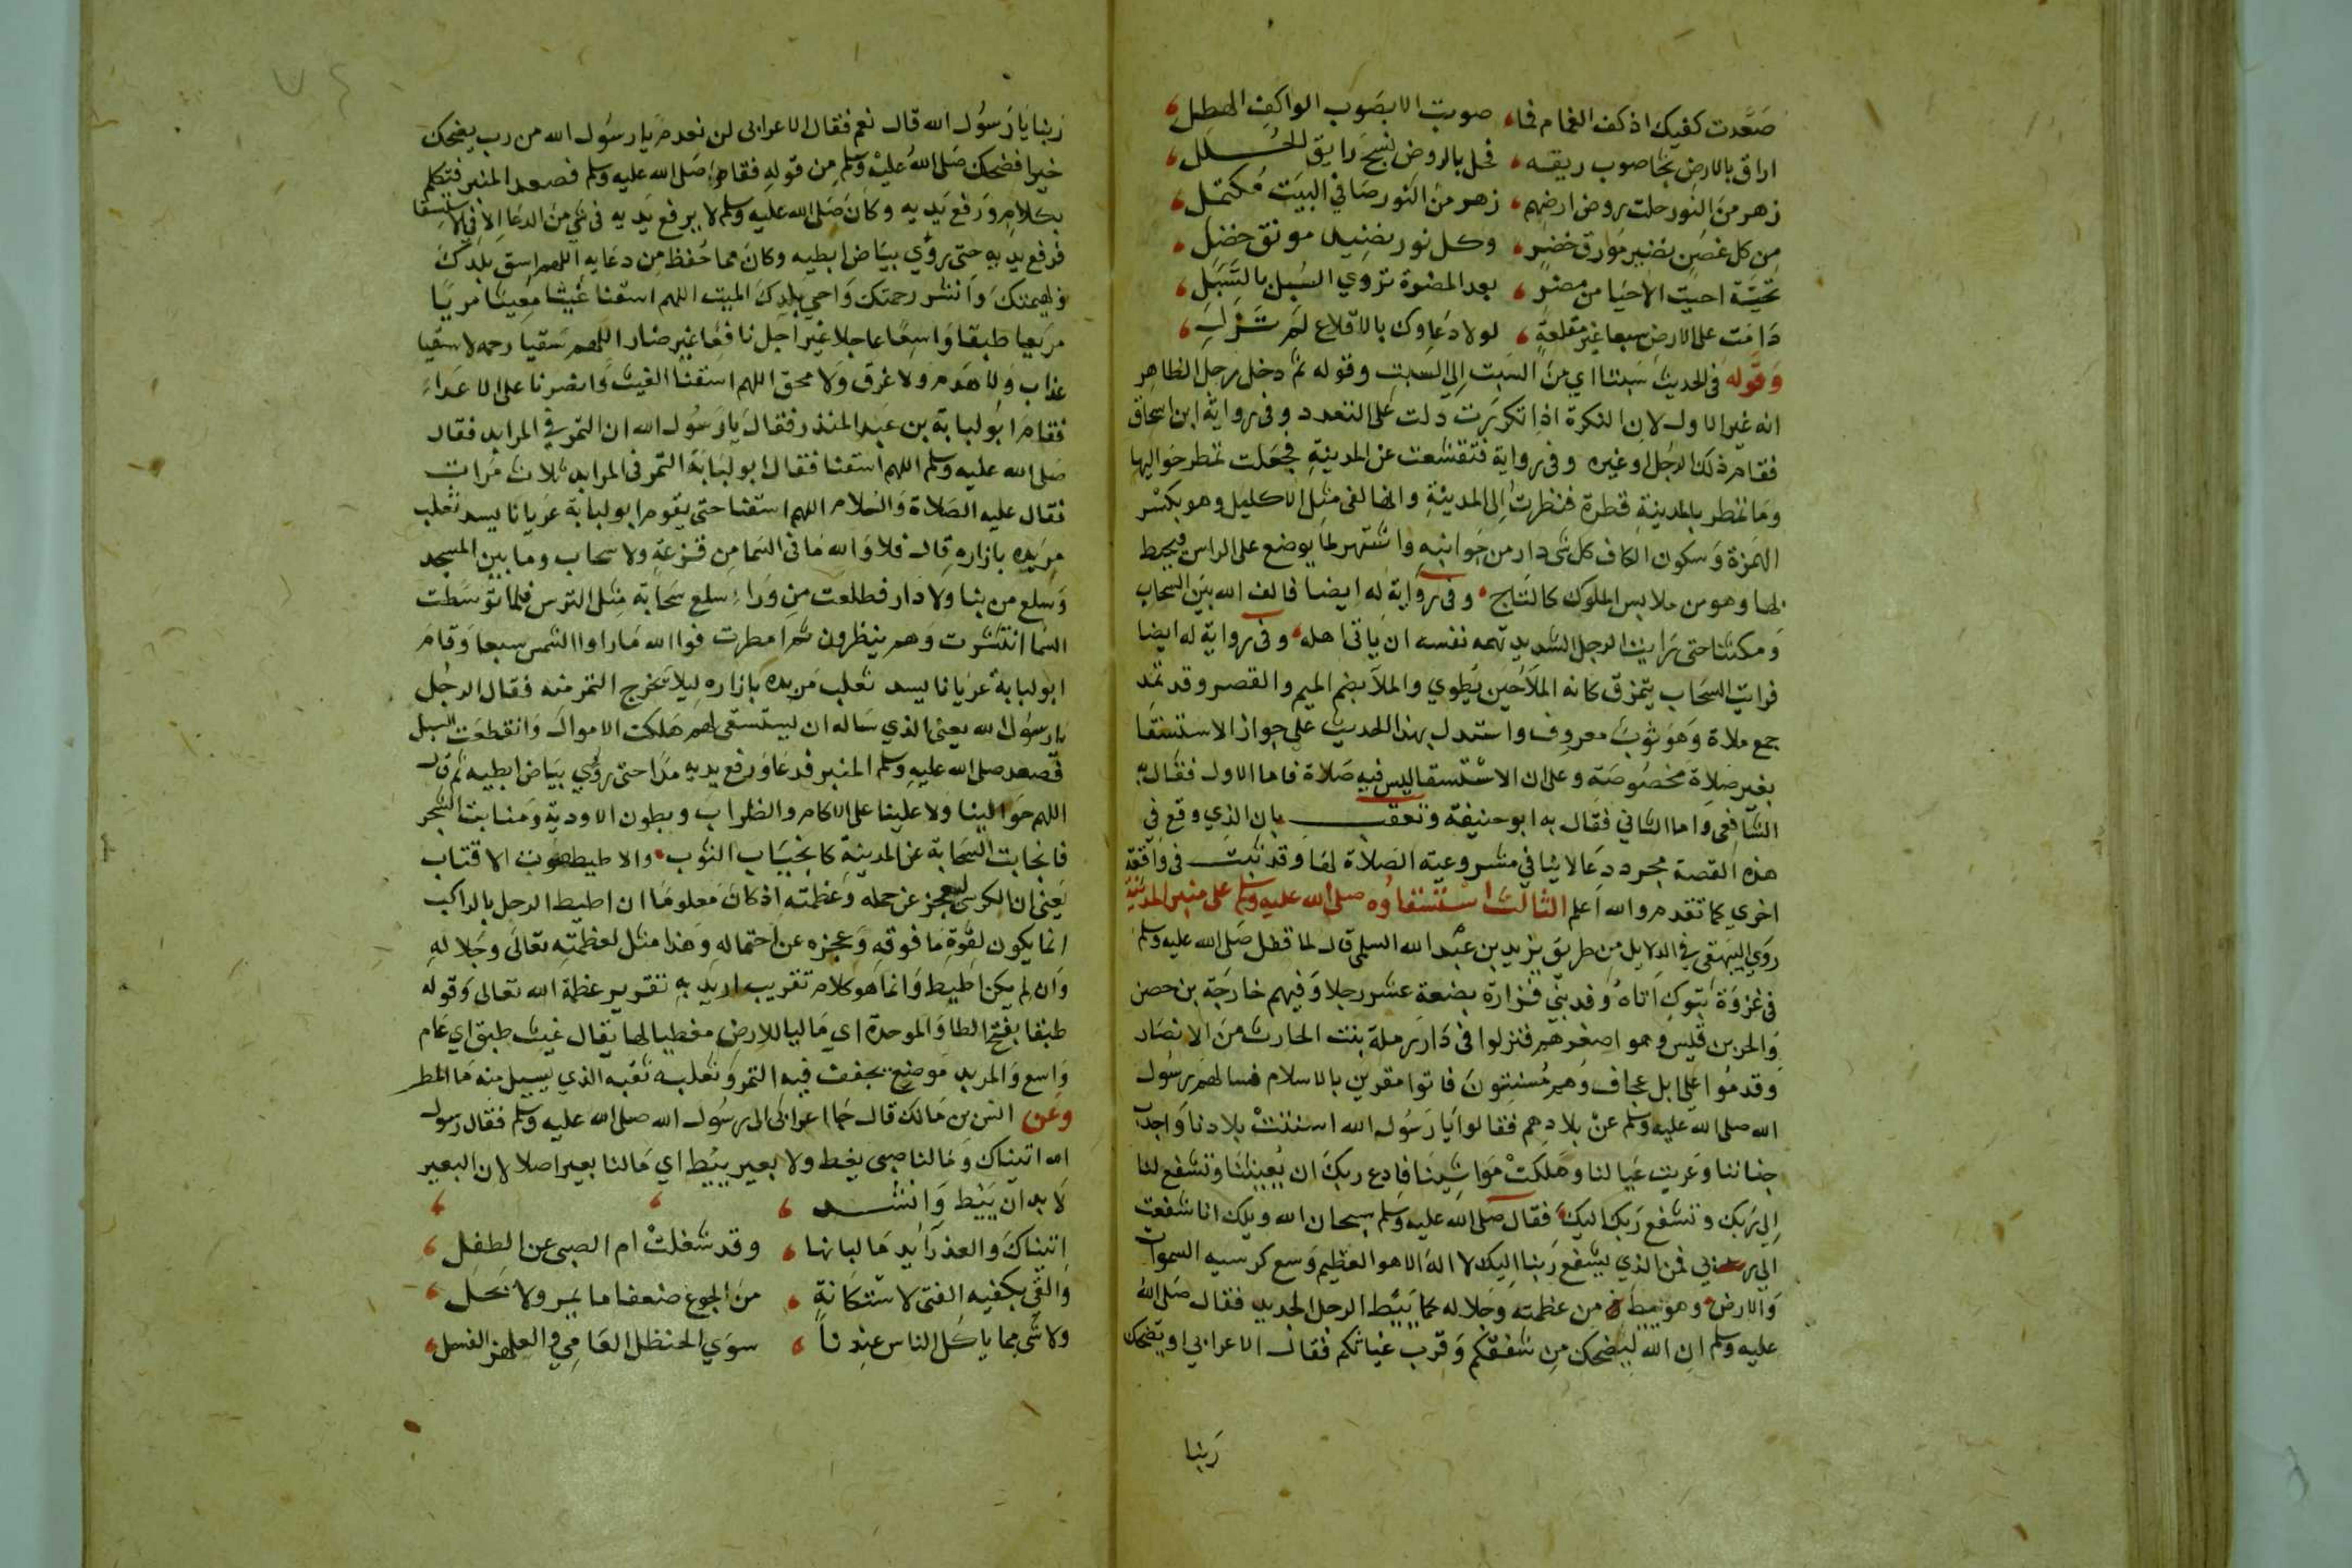 صَعَّدت كفيك اذ كف الغمام فما، صوبت الا بصَوب الواكف الهطل،
اراق بالارض ثجا صوب ريقه، فحل بالروض نسج رايق الحلل،
زهر من النور حلت بروض ارضهم، زهر من النور صافي البيت مكتمل،
من كل غصن نضير مورق خضر، وكل نور نضيد مونق خضل،
تحيّة احيت الاحيا من مضر، بعد المضرة تروي السبل بالسبل،
دَامَت على الارض سبعا غير مقلعة، لولا دعاوك بالاقلاع لم تزل،
وَقوله في الحديث سَبتا اي من السَبت الي السبت وقوله ثم دخل رجل الظاهر
انه غير الاول لان النكرة اذا تكررت دلت على التعدد وفي رواية ابن اسحاق
فقام ذلك الرجل او غيره وفي رواية فتقشعت عن المدينة فجعلت تمطر حواليها
ومَا تمطر بالمدينة قطرة فنظرت الي المدينة وانها لفي مثل الاكليل وهو بكسْر
الهمزة وَسكون الكاف كل شي دار من جَوانبه واشتهر لما يوضع على الراس فيحيط
بها وهو من ملابس الملوك كالتاج وفي رَواية له ايضا فالف الله بين السحاب
وَمكثنا حتى رَايت الرجل الشديد تهمه نفسه ان ياتي اهله وفي رواية له ايضا
فرايت السحَاب يتمزق كانه الملا حين يُطوي والملا بضم الميم والقصر وقد تمد
جمع ملاة وَهو ثوب معروف واستدل بهذا الحديث على جواز الاستسقا
بغير صَلاة مخصُوصَة وعلى ان الاسْتسقا ليس فيه صَلاة فاما الاول فقال به
الشافعي واما الثاني فقال به ابو حنيفة وتعقب بان الذي وقع في
هذه القصة مجرد دعا لا ينافي مشروعية الصَلاة لها وقد ثبت في واقعة
اخري كما تقدم والله اعلم الثالث استسقاوه صلى الله عليه وسلم على منبر المدينة
روَي البيهقي في الدلايل من طريق يزيد بن عبْد الله السلمي قال لما قفل صَلى الله عليه وسلم
في غزوَة تبوك اتاه وفد بني فزارة بضعة عشر رجلا وَفيهم خارجَة بن حصن
والحر بن قيس وهو اصغرهم فنزلوا في دَار رملة بنت الحارث من الانصَار
وقدمُوا على ابل عجاف وَهم مُسنتونَ فاتوا مقرين بالاسلام فسالهم رسُول
الله صلى الله عليه وسلم عنْ بلادهم فقالوا يَا رَسُول الله اسنتتْ بلادنا وَاجدب
جناننا وَعريت عيالنا وهَلكتْ مَواشينَا فادع ربكَ ان يُغيثنَا وتشفع لنا
الي رَبك وتشفع رَبك اليك فقال صلى الله عليه وسلم سبحان الله ويلك انا شفعت
الي ربي فمن الذي يشفع ربنا اليه لا اله الا هو العظيم وَسع كرسيه السموات
وَالارض وهو يئط من عظمته وَجلاله كما يَئِط الرحل الجديد فقال صَلى الله
عليه وسلم ان الله ليضحك من شفقكم وَقرب غياثكم فقال الاعرابي او يضحك
رَبنا
رَبنا يَا رَسُول الله قال نعم فقال الاعرابي لن نعدم يا رسُول الله من رب يضحك
خيرا فضحك صَلى الله عليه وسلم من قوله فقام صَلى الله عليه وسلم فصعد المنبر فتكلم
بكلام وَرفع يَديه وكانَ صَلى الله عليه وسلم لا يرفع يَديه في شي من الدعا الا في الاستسقا
فرفع يديه حتى رؤي بيَاض ابطيه وكان مما حُفظ من دعايه اللهم اسق بلدك
وَبهيمتكَ وَانشر رحمتك وَاحي بلدكَ الميت اللهم اسقنا غيثا مغيثا مريًا
مريعا طبقا وَاسعًا عاجلا غير اجل نافعًا غير ضار اللهم سَقيا رحمه لا سقيا
عذاب وَلا هَدم ولا غرق وَلا محق اللهم اسقنا الغيث وَانصرنا على الاعدَاءَ
فقامَ ابُو لبابة بن عبد المنذر فقالَ يَا رَسُول الله ان التمر في المرابد فقال
صَلى الله عليه وسلم اللهم اسقنا فقال ابو لبَابَة التمر في المرابد ثلاث مَرات
فقال عليه الصَلاة وَالسَلام اللهم اسقنا حتى يقوم ابو لبابة عَريانا يسد ثعلب
مِربده بازاره قال فلا وَالله مَا في السَما من قزعة ولا سحاب وما بين المسجد
وَسلع من بنا ولا دار فطلعت من وَراء سلع سَحَابة مثل الترس فلما توسَّطت
السَما انتشرت وَهم ينظرون ثم امطرت فوا الله مَا راوا الشمس سبعا وَقامَ
ابو لبابة عَريَانا يسد ثعلب مَربده بازاره ليلا يخرج التمر منه فقال الرجل
يا رسُول الله يعني الذي سَاله ان يستسقي لهم هَلكت الاموال وَانقطعَت السبل
فصعد صلى الله عليه وسلم المنبر فدعَا وَرفع يديه مدًّا حتى رؤي بيَاض ابطيه ثم قال
اللهم حوَالينا ولا علينا على الاكام والظراب وبطون الاودية وَمنابت الشجر
فانجابت السحَابة عن المدينة كانجيَاب الثوب والاطيط صوت الاقتاب
يَعني ان الكرسي ليعجز عن حمله وعَظمته اذ كانَ مَعلومًا ان اطيط الرحل بالراكب
انما يكون لقوة مَا فوقه وَعجزه عن احتماله وَهذا مثل لعظمته تعالَى وجَلاله
وَان لم يكن اطيط وَانما هو كلام تقريب اريد به تقرير عظمة الله تعالى وَقوله
طبقا بفتح الطا وَالموحدة اي مَاليا للارض مغطيا لها يقال غيث طبق اي عَام
وَاسع وَالمربد مَوضع يجفف فيه التمر وَثعلبه ثقبه الذي يسيل منه مَا المطر
وعن انس بن مَالك قال جَا اعرابي الى رسُول الله صلى الله عليه وسلم فقال رسول
الله اتيناك وَمَا لنا صبي يغط ولا بعير يئط اي مَا لنا بعير اصلا لان البعير
لا بد ان يَئط وَانشد ، ، ،
اتيناكَ والعذرَا يد مَا لبانها، وقد شغلتْ ام الصبي عن الطفل،
وَالقي بكفيه الفتى لاسْتكَانةٍ، من الجوع ضعفا ما يمر ولا يحل،
ولا شي مما ياكل الناس عندنا، سوَي الحنظل العَامي والعلهز الفسل،